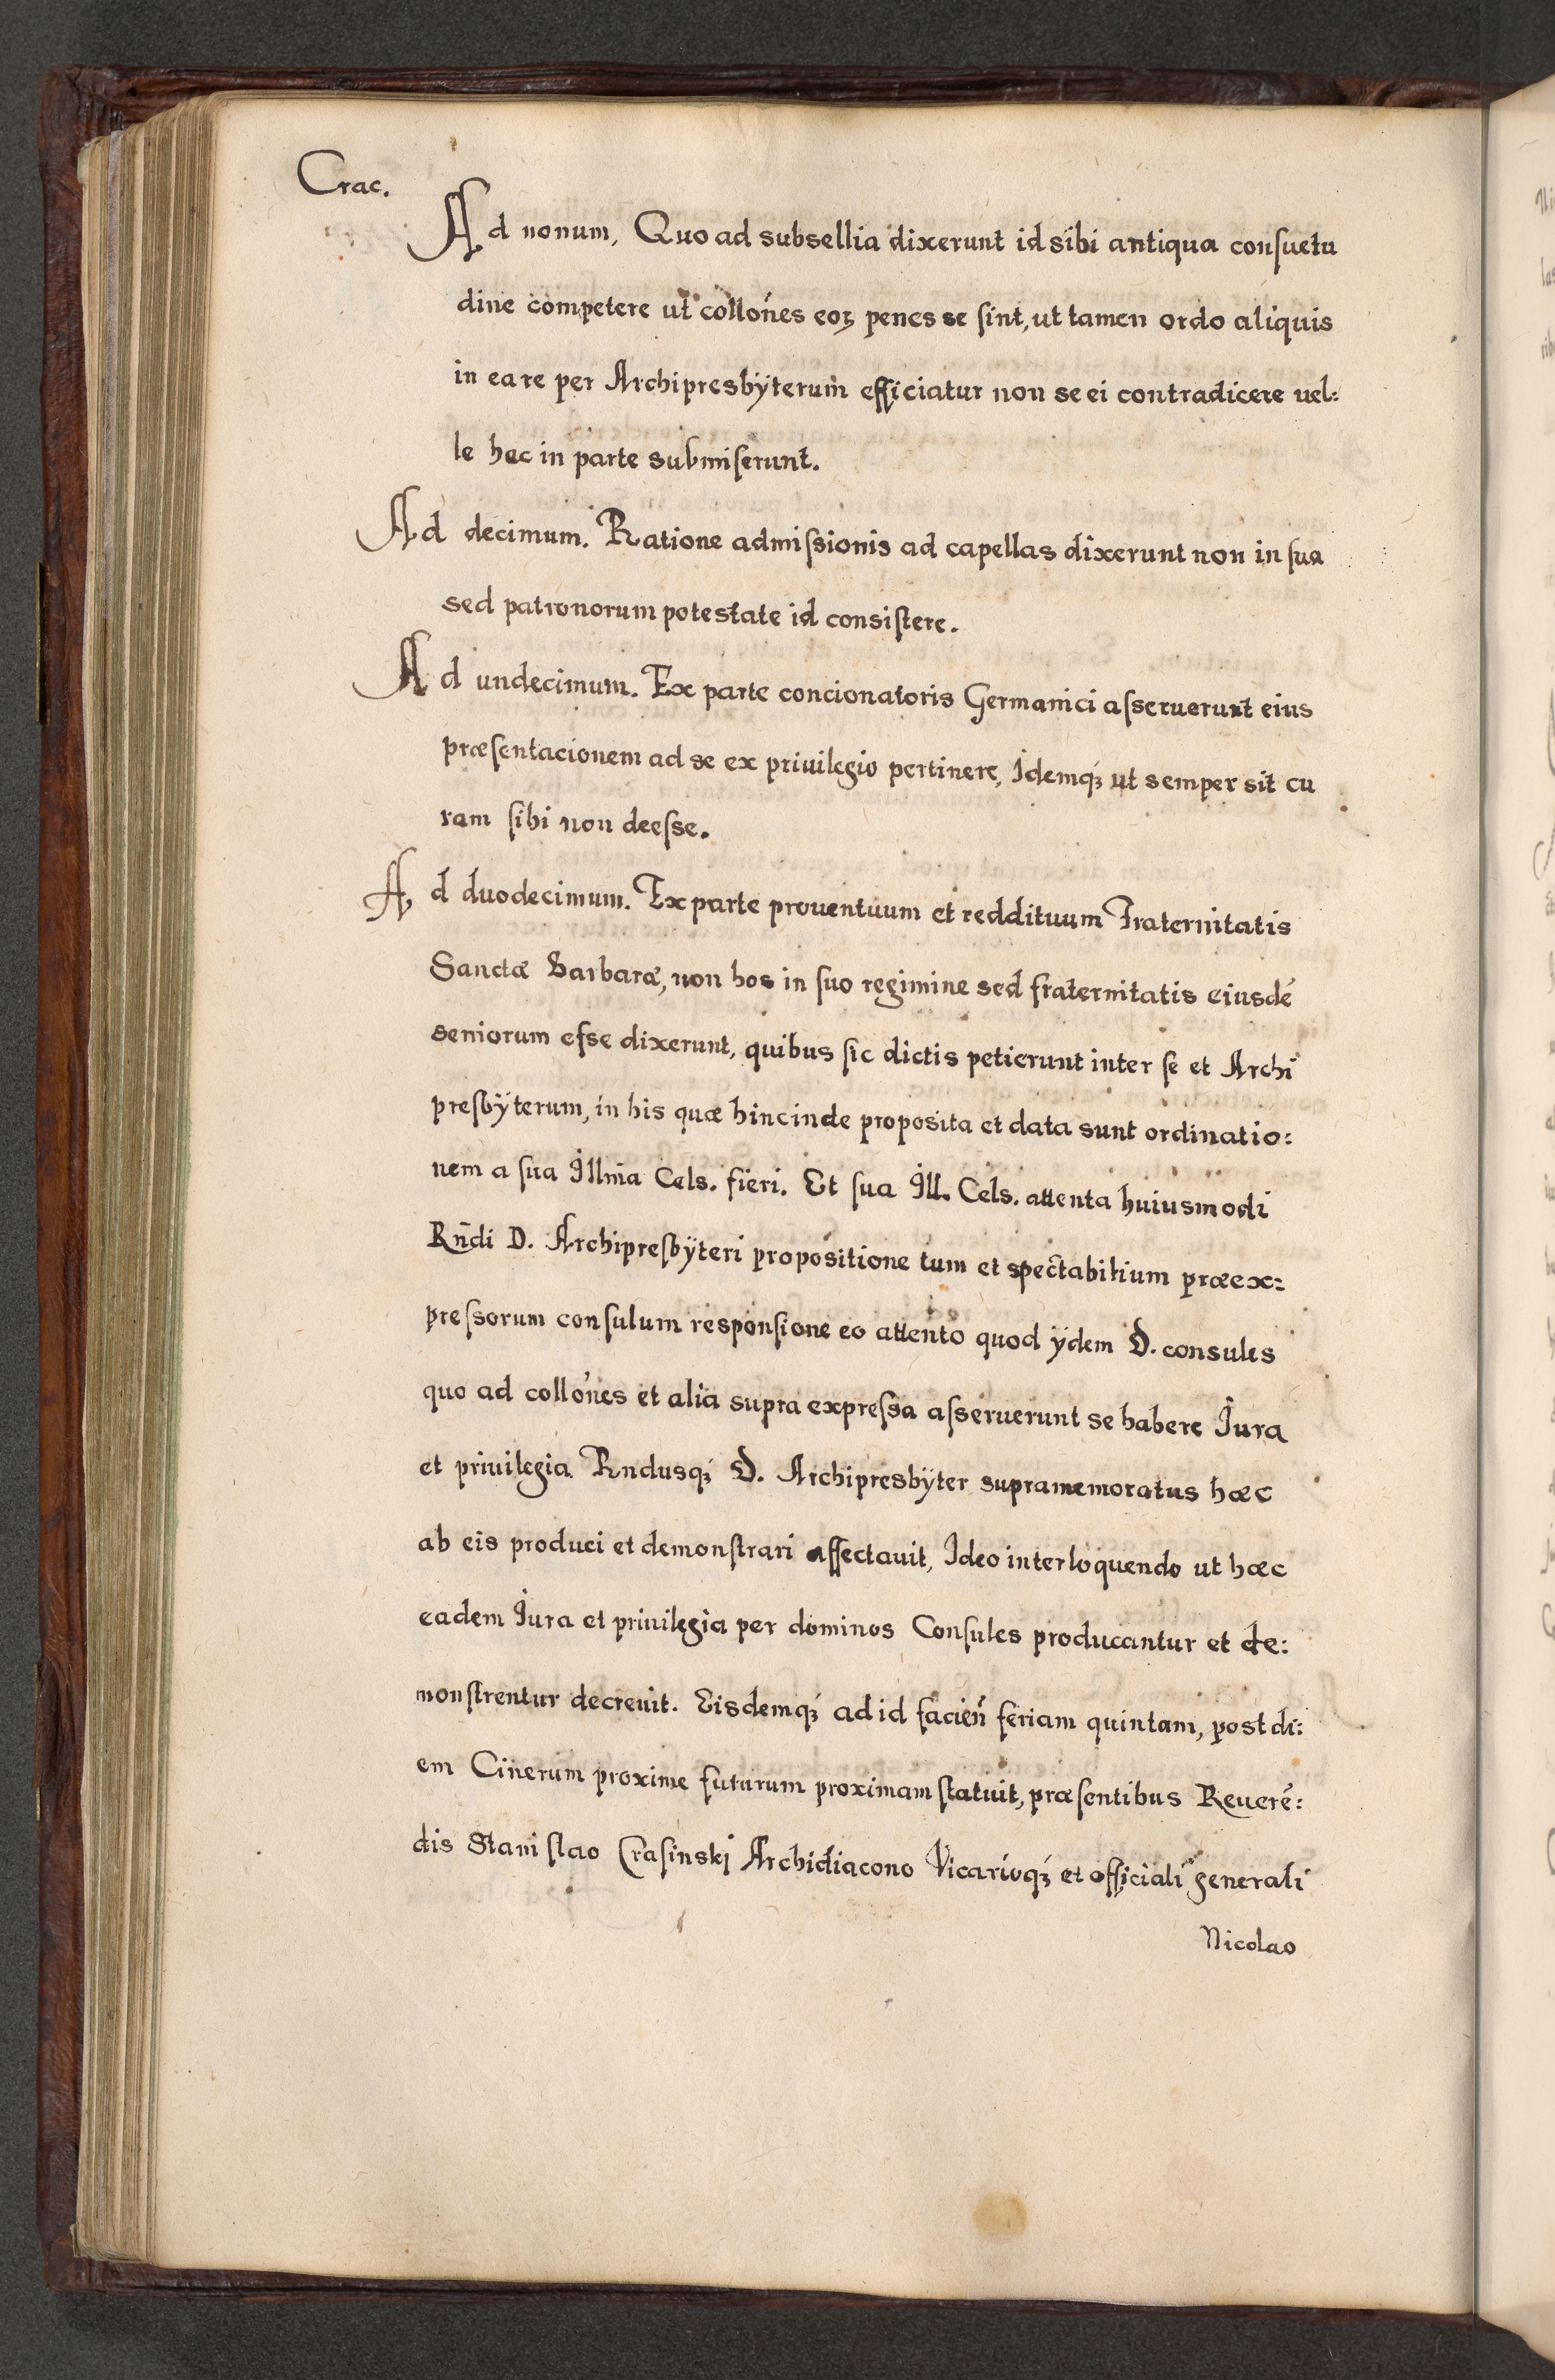 Crac.
Ad nonum, Quo ad subsellia dixerunt id sibi antiqua consuetu
dine competere ut collo͞nes eoꝝ penes se sint, ut tamen ordo aliquis
in ea re per Archipresbÿterum efficiatur non se ei contradicere uel:
le hec in parte submiserunt.
Ad decimum. Ratione admissionis ad capellas dixerunt non in sua
sed patronorum potestate id consistere.
Ad undecimum. Ex parte concionatoris Germanici asseruerunt eius
præsentacionem ad se ex priuilegio pertinere, Idemqꝫ ut semper sit cu
ram sibi non deesse.
Ad duodecimum. Ex parte prouentuum et reddituum Fraternitatis
Sanctæ Barbaræ, non hos in suo regimine sed fraternitatis eiusdē
seniorum esse dixerunt, quibus sic dictis petierunt inter se et Archi
presbÿterum, in his quæ hincinde proposita et data sunt ordinatio:
nem a sua Illm̄a Cels. fieri. Et sua Ill. Cels. attenta huiusmodi
Rn̄di D. Archipresbÿteri propositione tum et spectabilium præex:
pressorum consulum responsione eo attento quod ÿdem D. consules
quo ad collo͞nes et alia supra expressa asseruerunt se habere Iura
et priuilegia Rndusqꝫ D. Archipresbÿter supramemoratus hæc
ab eis produci et demonstrari affectauit, Ideo interloquendo ut hæc
eadem Iura et priuilegia per dominos Consules producantur et de:
monstrentur decreuit. Eisdemqꝫ ad id facien̄ feriam quintam, post di:
em Cinerum proxime futurum proximam statuit, præsentibus Reuerē:
dis Stanislao Crasinskj Archidiacono Vicarioqꝫ et officiali generali
Nicolao